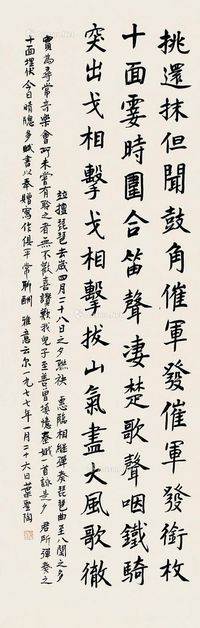 挑還抹但聞鼓角催軍發催軍發銜枚
十面霎時圍合笛聲淒楚歌聲咽鐵騎
突出戈相擊戈相擊拔山氣盡大風歌徹
擅琵琶去歲四月二十八日之夕聯袂惠臨相繼彈奏琵琶曲至八闋之多
實為尋常音樂會所未嘗有聆之者無不歡喜讚歎我兒子至善曾填憶秦娥一首詠是夕君所彈奏之
十面埋伏今日晴牕多暇書以奉贈寫作俱平常聊酬雅意云尔一九七七年一月二十六日葉聖陶